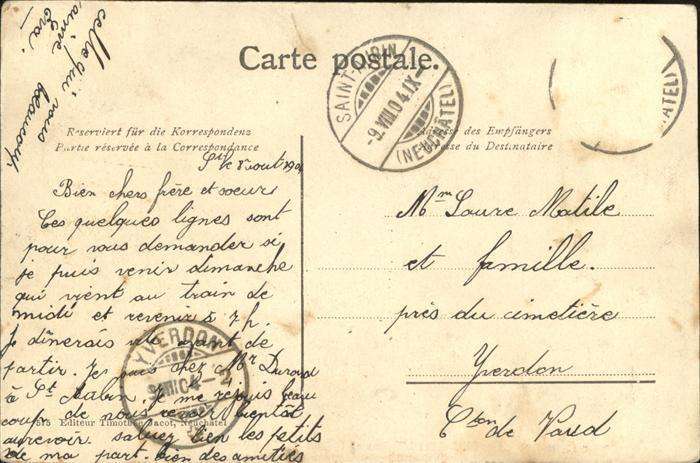 Carte postale.
SAINT-AUBIN
-9.VIII.04.IX-
(NEUCHÂTEL)
Reserviert für die Korrespondenz
Partie réservée à la Correspondance
des Empfängers
du Destinataire
St le 8 août 1904
Bien chers frère et soeur
Ces quelques lignes sont
pour vous demander si
je puis venir dimanche
qui vient au train de
midi et revenir à 7 h.
Je dînerais avant de
partir. Je suis chez Mr Durand
à St Aubin. Je me réjouis beau
coup de nous revoir bientôt
aurevoir saluez bien les petits
de ma part. bien des amitiés
celle qui vous
aime beaucoup
Mme Laure Matile
et famille.
près du cimetière
Yverdon
Cton de Vaud
YVERDON
Editeur Timothée Jacot, Neuchâtel